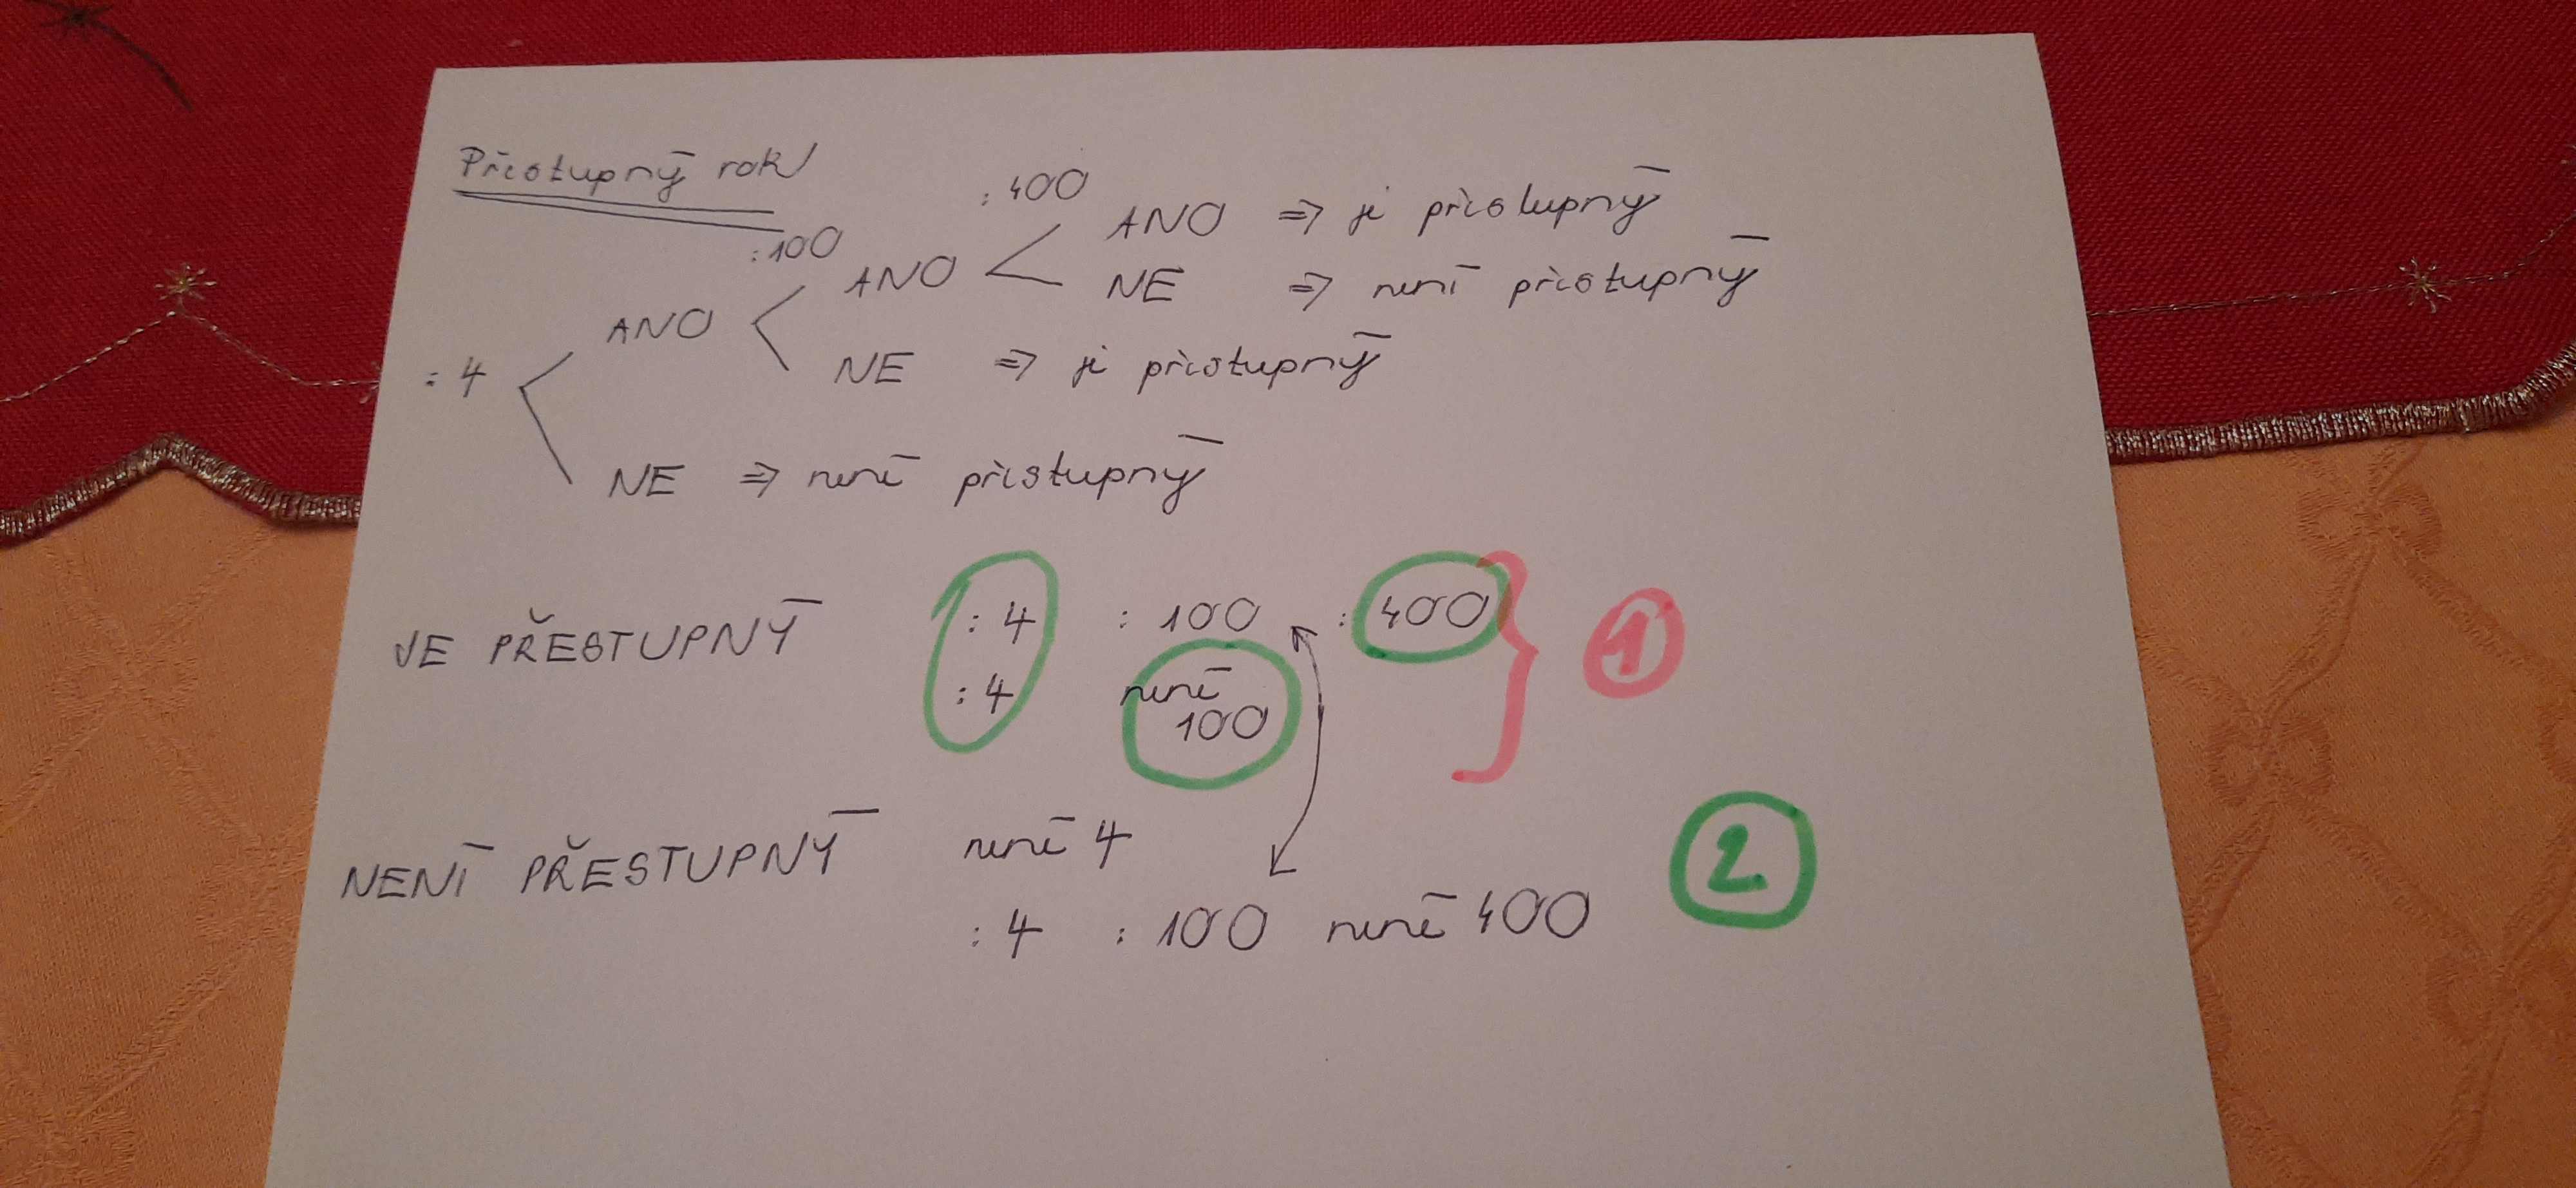 Přestupný rok
: 400
ANO ⇒ je přestupný
: 100
ANO
NE ⇒ není přestupný
ANO
: 4
NE ⇒ je přestupný
NE ⇒ není přestupný
JE PŘESTUPNÝ : 4 : 100 : 400
: 4 není
100
1
NENÍ PŘESTUPNÝ není 4
2
: 4 : 100 není 400